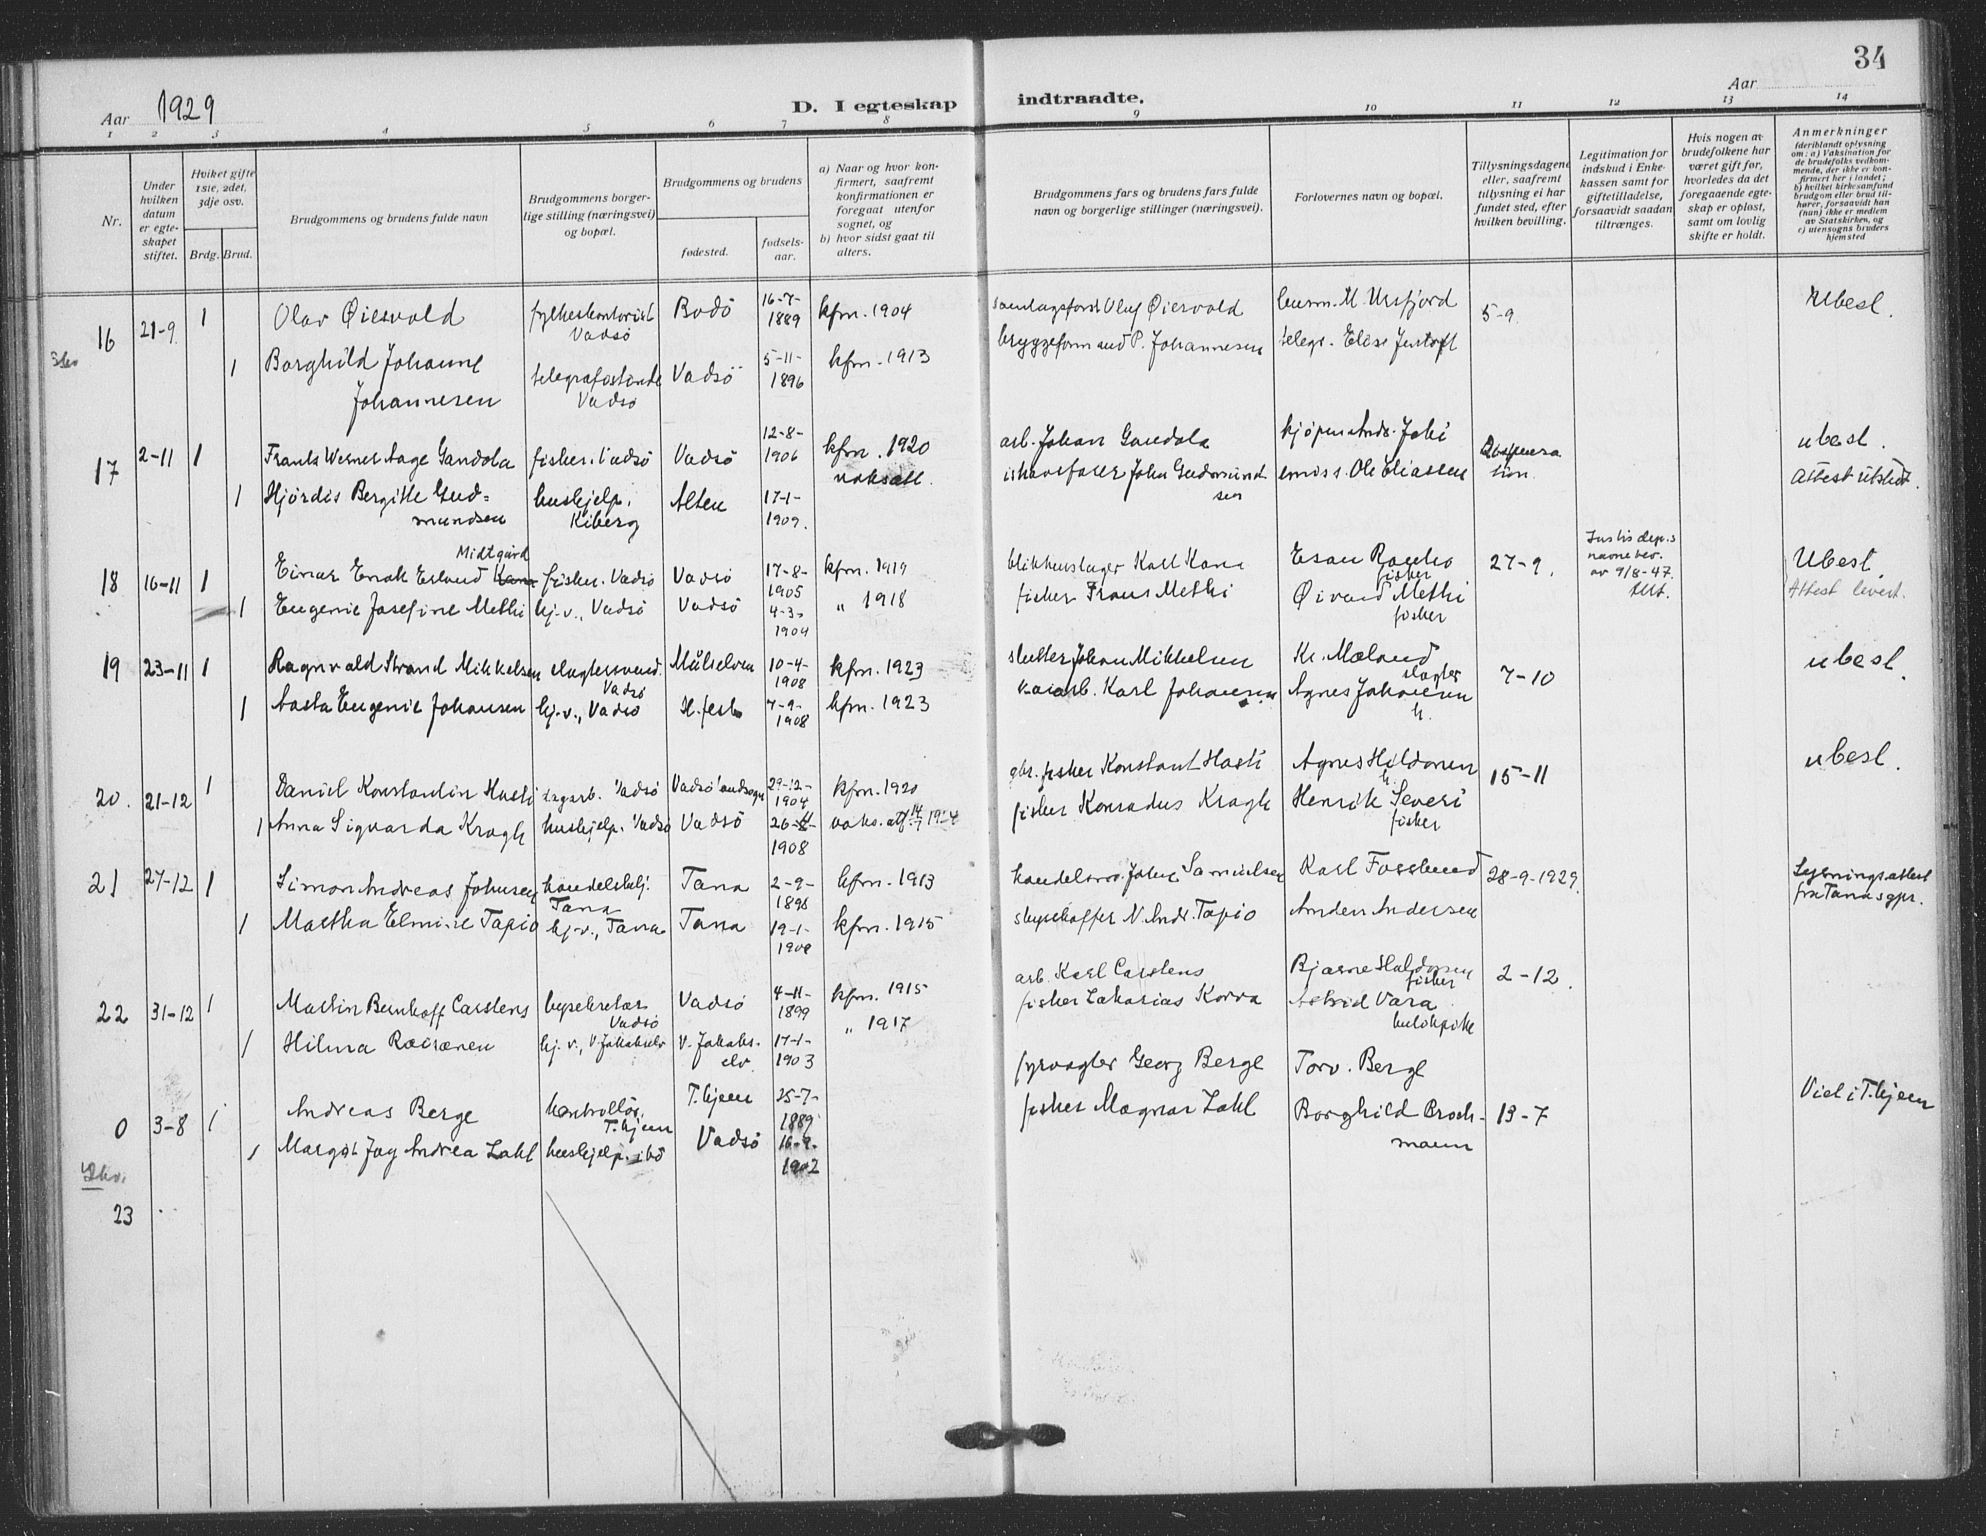 34
Aar 1929
D. I egteskap indtraadte.
Aar
1 2 3 4 5 6 7 8 9 10 11 12 13 14
Nr.
Under hvilken datum er egteskapet stiftet.
Hviket gifte 1ste, 2det, 3dje osv.
Brdg. Brud.
Brudgommens og brudens fulde navn
Brudgommens borgerlige stilling (næringsvei) og bopæl.
Brudgommens og brudens
fødested.
fødselsaar.
a) Naar og hvor konfirmert, saafremt konfirmationen er foregaat utenfor sognet, og
b) hvor sidst gaat til alters.
Brudgommens fars og brudens fars fulde navn og borgerlige stillinger (næringsvei).
Forlovernes navn og bopæl.
Tillysningsdagene eller, saafremt tillysning ei har fundet sted, efter hvilken bevilling.
Legitimation for indskud i Enkekassen samt for giftetilladelse, forsaavidt saadan tiltrænges.
Hvis nogen av brudefolkene har været gift før, hvorledes da det foregaaende egteskap er opløst, samt om lovlig skifte er holdt.
Anmerkninger
fderiblandt oplysning om: a) Vaksination for de brudefolks vedkommende, der ikke er konfirmert her i landet; b) hvilket kirkesamfund brudgom eller brud tilhører, forsaavidt han (nun) ikke er medlem av Statskirken, og c) utensogns bruders hjemsted
16 21-9 1 Olav Øiesvold fylkeskontorist Vadsö Bodö 16-7-1889 kfm. 1904 Oluf Øiesvold M. Ursfjord 5-9 Ubesl.
1 Borghild Johanne Johannesen Vadsö Vadsö 5-11-1896 kfm. 1913 bryggeformand P. Johannesen telegr. Elise Justoft
17 2-11 1 Frants Werner Aage Gandola fisker. Vadsö Vadsö 12-8-1906 kfm. 1920 arb. Johan Gandola ubesl.
1 Hjördis Bergitte Gudmundsen hushjelp, Kiberg Alten 17-1-1909. ishavsfarer John Gudmundsen Ole Eliassen Attest utstedt.
18 16-11 1 Einar Enok Erland Kana Midtgård fisker. Vadsö Vadsö 17-8-1905 kfm. 1919 blikkenslager Karl Kana fisker 27-9. Justisdep.s navnebev. av 9/8-47. Ubesl.
1 Eugenie Josefine Methi hj.v., Vadsö Vadsö 4-3-1904 " 1918 fisker Frans Methi Øivind Methi fisker Attest levert.
19 23-11 1 Ragnvald Strand Mikkelsen slagtersvend. Vadsö Målselven 10-4-1908 kfm. 1923 Johan Mikkelsen Kr. Mæland slagter 7-10 ubesl.
1 Aasta Eugenie Johansen hj.v., Vadsö H.fest 7-9-1908 kfm. 1923 Karl Johansen Agnes Johansen
20. 21-12 1 Daniel Konstantin Hasti dagarb. Vadsö Vadsö landsogn 29-12-1904 kfm. 1920 fisker Konstant Hasti Agnes Haldonen 15-11 ubesl.
1 Anna Sigvarda Kragh hushjelp. Vadsö Vadsö 1908 fisker Konradus Kragh Henrik Severi fisker
21 27-12 1 Simon Andreas Johnsen handelsbetj. Tana Tana 2-9- kfm. 1913 Samuelsen Karl Fosslund 28-9-1929. Lysningsattest fra Tana sgpr.
1 Martha Elmine Tapio hj.v., Tana Tana 19-1- kfm. 1915 N. Andr. Tapio Anders Andersen
22 31-12 1 Martin Bernhoff Carstens bysekretær Vadsö Vadsö 4-11-1899 kfm. 1915 arb. Karl Carstens Bjarne Haldorsen fisker 2-12.
1 Hilma Raisænen hj.v., V. Jakobselv V. Jakobselv 17-1-1903 " 1917 fisker Zakarias Korva Astrid Vara
0 3-8 1 Andreas Berge kontrollör, T.hjem T.hjem 25-7-1889 fyrvogter Georg Berge Torv. Berge 13-7 Viet i T.hjem
1 Margit Jay Andrea Lahl hushjelp. Vadsö 16-9-1902 fisker Magnar Lahl Borghild Brochmann
23